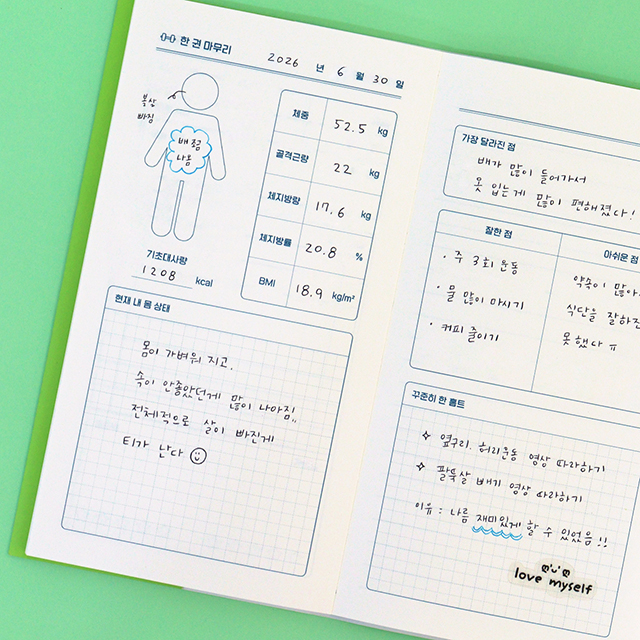 한 권 마무리
2026 년 6 월 30 일
볼살
빠짐
배 쪼끔
나옴
기초대사량
1208 kcal
체중 52.5 kg
골격근량 22 kg
체지방량 17.6 kg
체지방률 20.8 %
BMI 18.9 kg/m²
현재 내 몸 상태
몸이 가벼워 지고.
속이 안좋았던게 많이 나아짐,,
전체적으로 살이 빠진게
티가 난다
가장 달라진 점
배가 많이 들어가서
옷 입는게 많이 편해졌다!
잘한 점
· 주 3회 운동
· 물 많이 마시기
· 커피 줄이기
아쉬운 점
약속이 많아
식단을 잘하진
못했다 ㅠ
꾸준히 한 홈트
옆구리. 허리운동 영상 따라하기
팔뚝살 빼기 영상 따라하기
이유 : 나름 재미있게 할 수 있었음!!
love myself